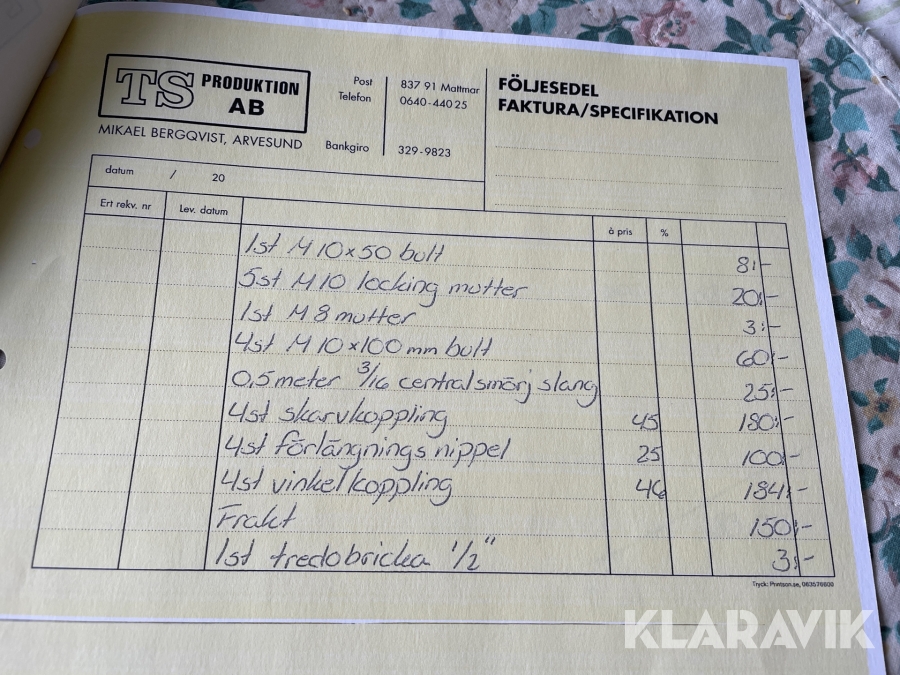 TS PRODUKTION AB
MIKAEL BERGQVIST, ARVESUND
Post 837 91 Mattmar
Telefon 0640-440 25
Bankgiro 329-9823
FÖLJESEDEL
FAKTURA/SPECIFIKATION
datum / 20
Ert rekv. nr Lev. datum à pris %
1st M10x50 bult 8:-
5st M10 locking mutter 20:-
1st M8 mutter 3:-
4st M10x100mm bult 60:-
0,5meter 3/16 centralsmörj slang 25:-
4st skarvkoppling 45 180:-
4st förlängnings nippel 25 100:-
4st vinkelkoppling 46 184:-
Frakt 150:-
1st tredobricka 1/2" 3:-
Tryck: Printson.se, 063576600
KLARAVIK